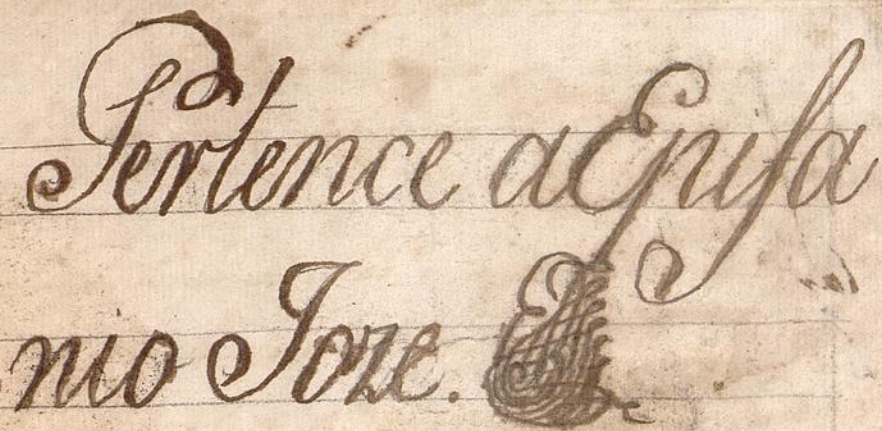 Pertence a Epifa
nio Joze.